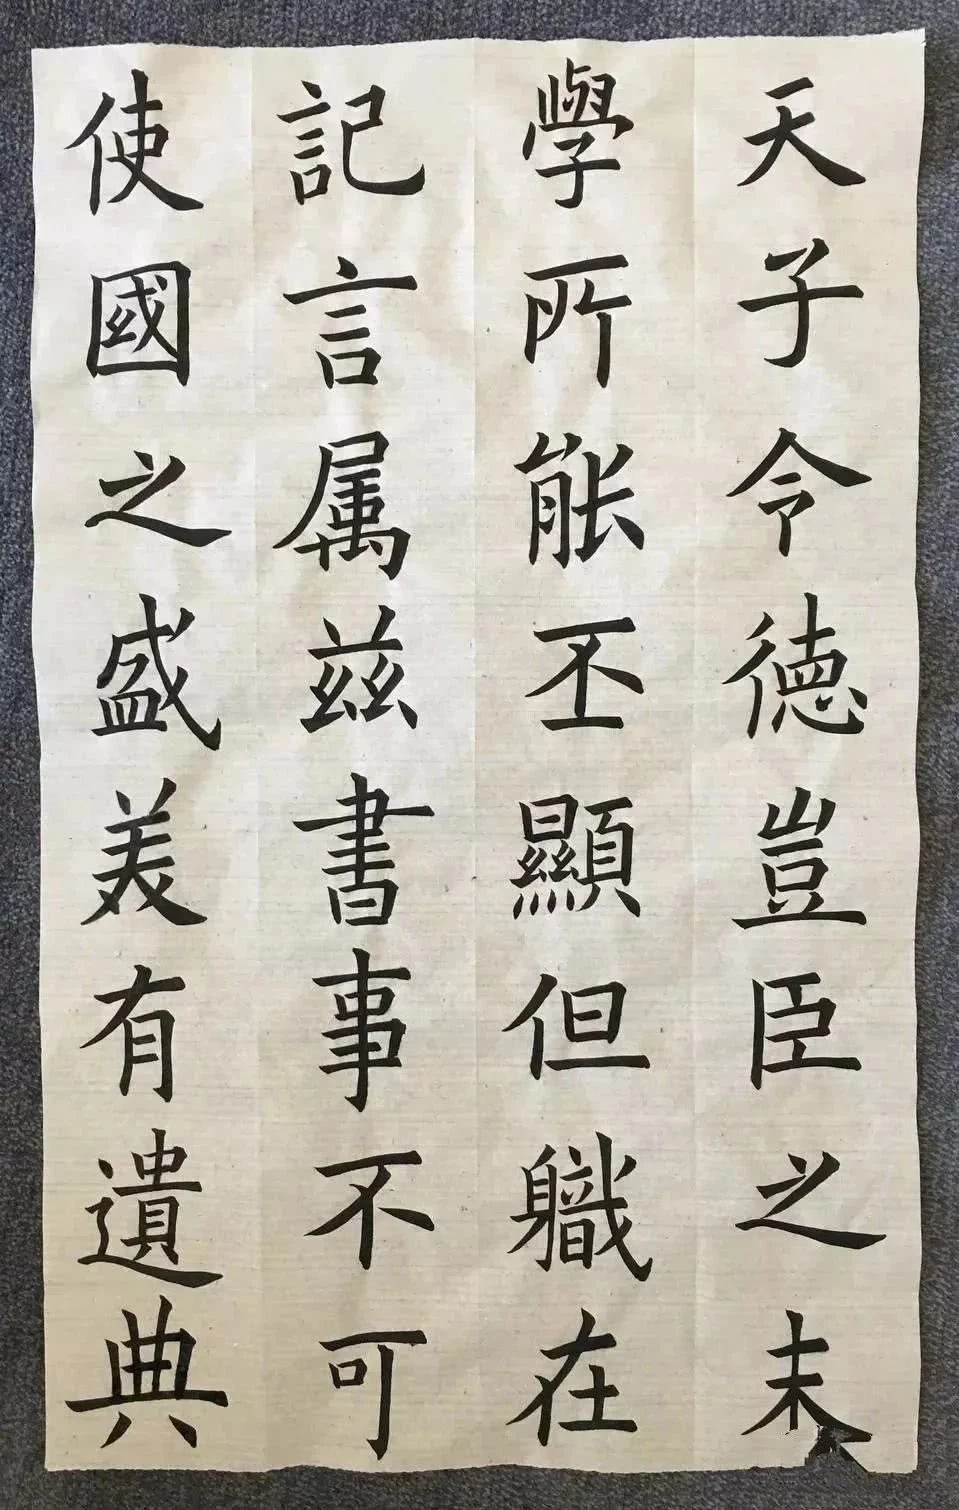 天子令德豈臣之末
學所能丕顯但軄在
記言属茲書事不可
使國之盛美有遺典